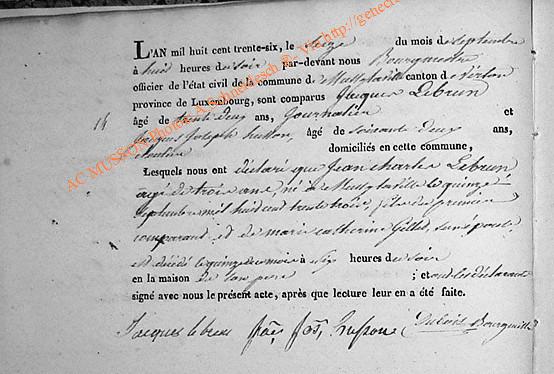 L'AN mil huit cent trente-six, le seize du mois de septembre
à huit heures du soir par-devant nous Bourgmestre
officier de l'état civil de la commune de Mussy la ville canton de Virton
province de Luxembourg, sont comparus Jacques Lebrun
14 âgé de trente deux ans, Journalier et
Jacques Joseph husson, âgé de soixante deux ans,
domiciliés en cette commune,
Lesquels nous ont déclaré que Jean charles Lebrun
agé de trois ans, né à Mussy la ville le quinze
septembre mil huit cent trente trois, fils du premier
comparant et de marie catherine Gillet, sans profe
est décédé le quinze du mois à six heures du soir
en la maison de son père ; et ont les déclarants
signé avec nous le présent acte, après que lecture leur en a été faite.
Jacques lebrun husson Bourgmestre
AC MUSSON Photos A. Schneidesch & V. http://genechro